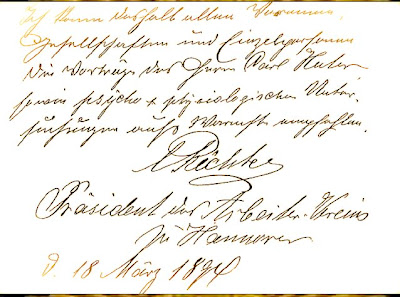 Ich kann deshalb allen Vereinen,
Gesellschaften und Einzelpersonen
die Vorträge des Herrn Carl Huter
sowie psycho & physiologischen Unter-
suchungen aufs Wärmste empfehlen.
Präsident des Arbeiter-Vereins
zu Hannover
d. 18 März 1894